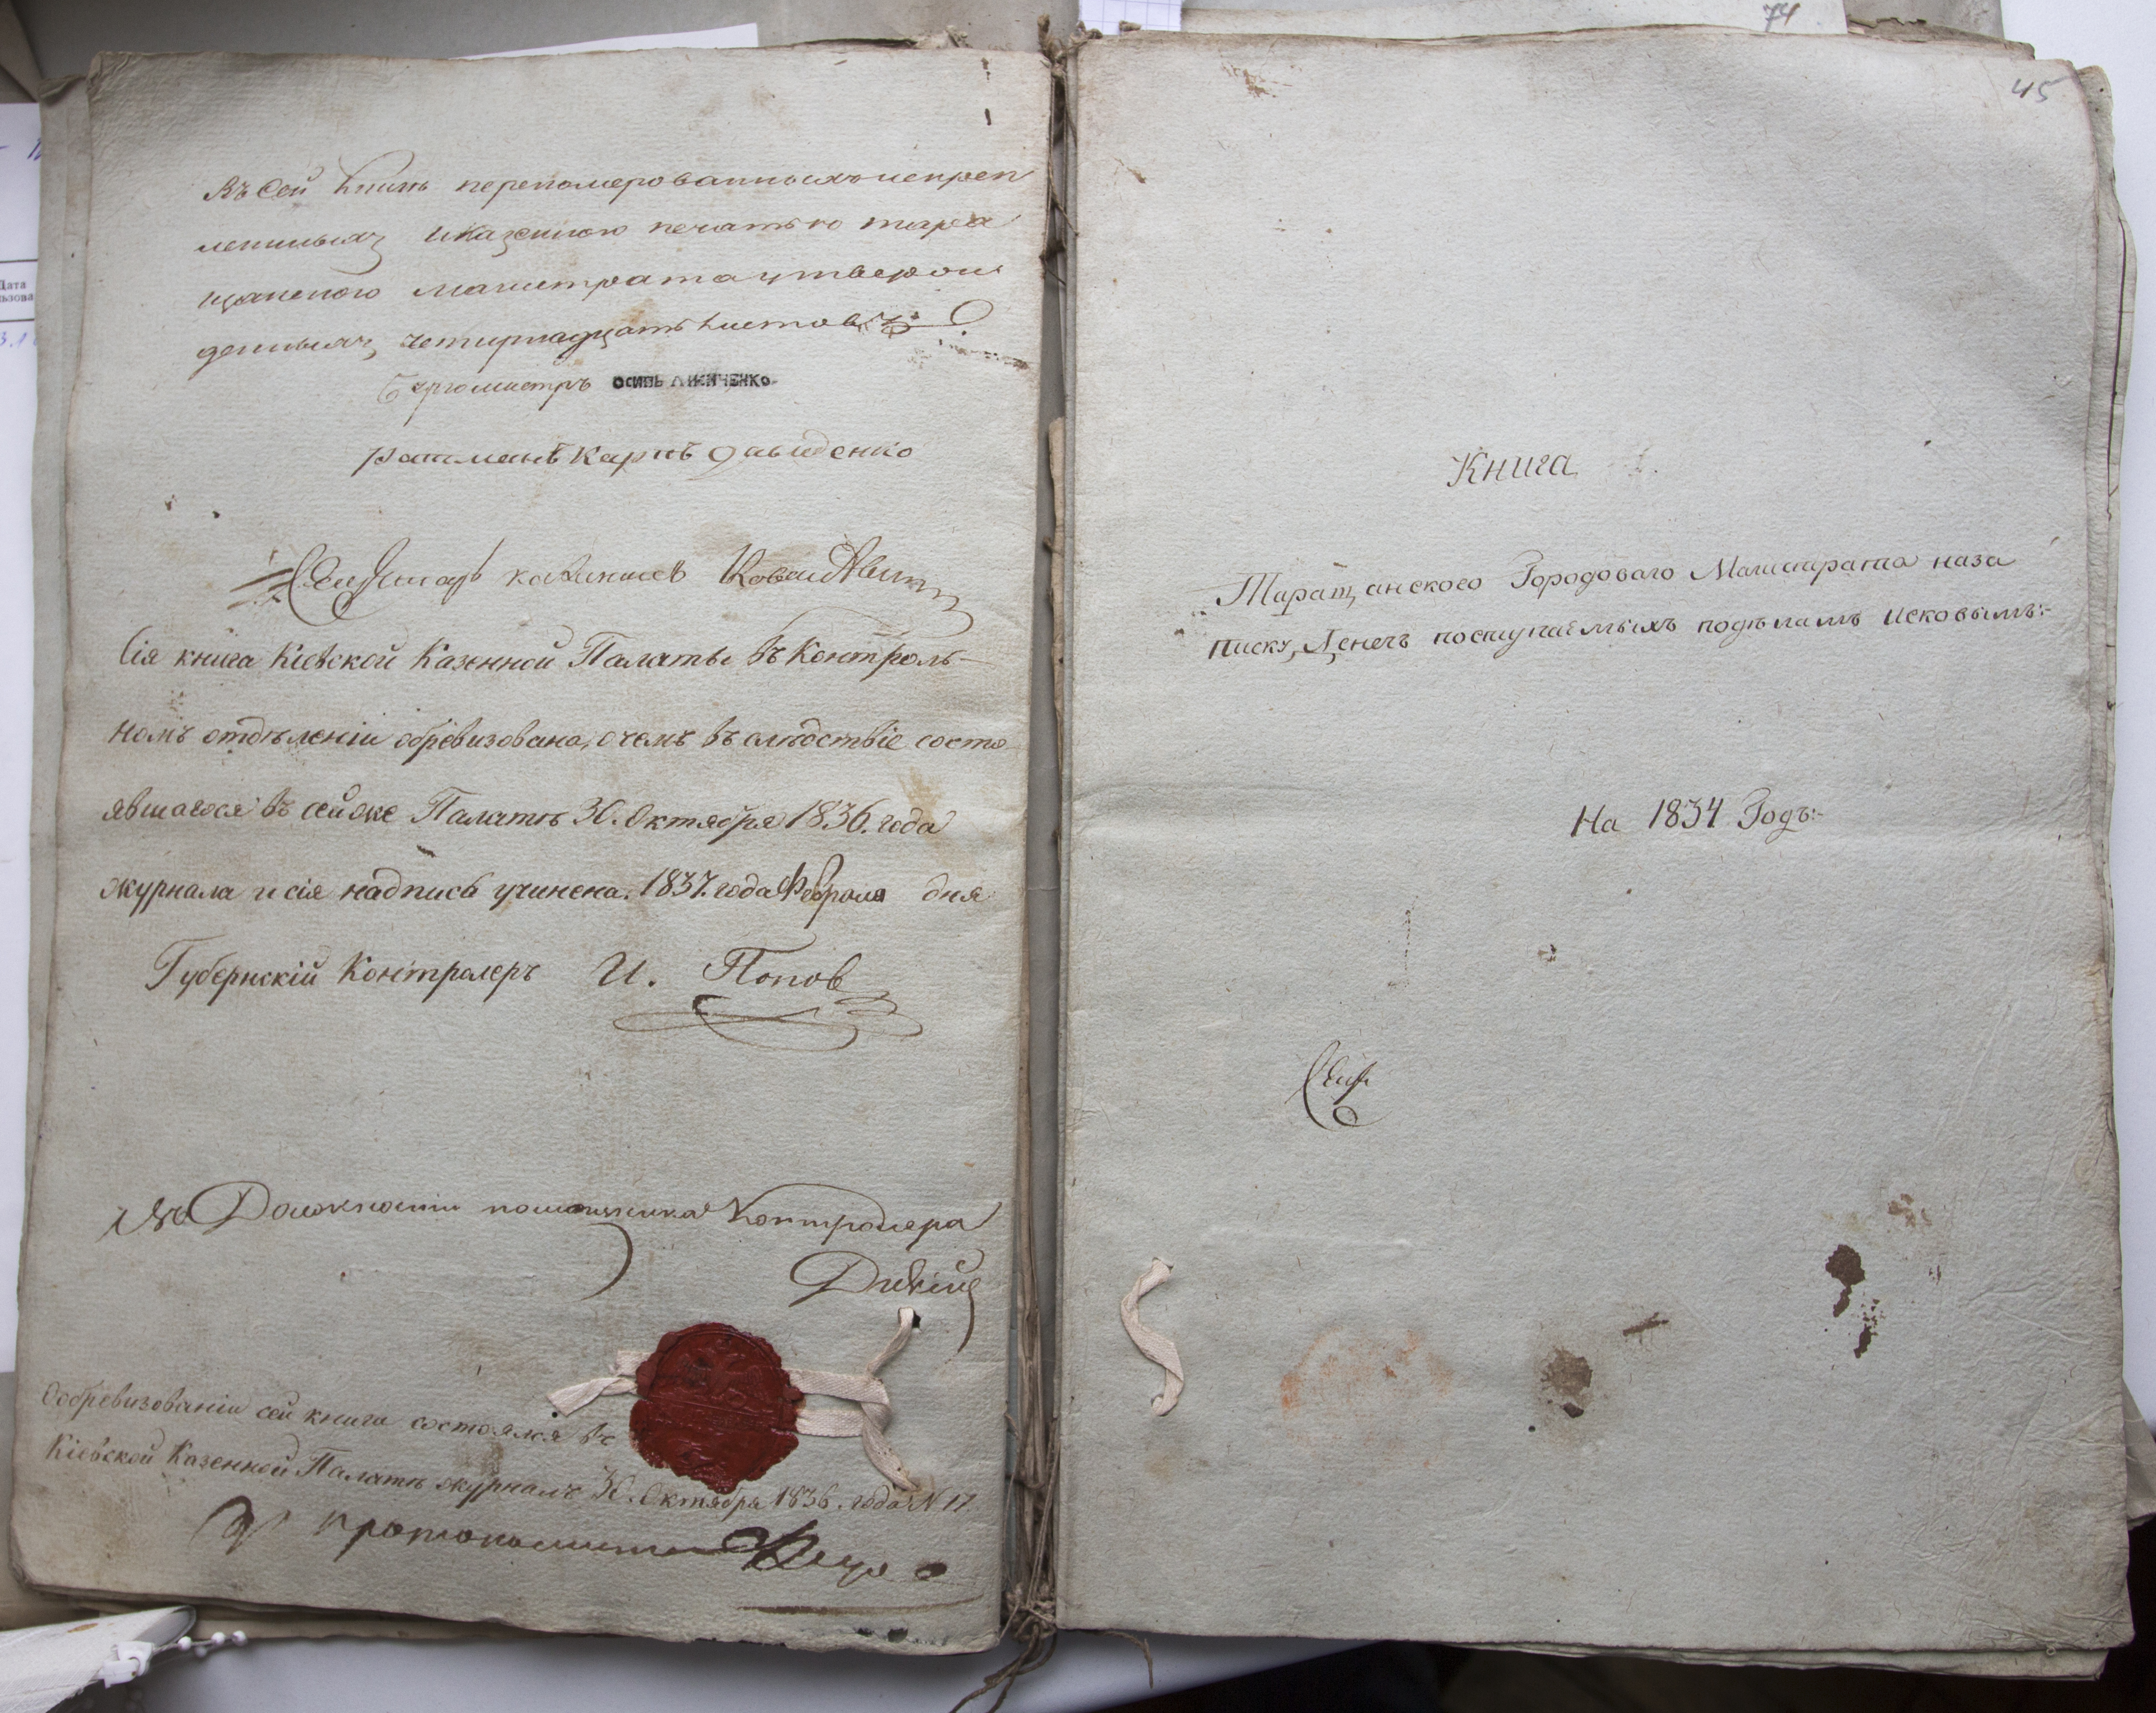 Въ сей книгѣ переномерованныхъ искреп
ленныхъ Иказенною печатью тара
щанскаго магистрата утверж
денныхъ, четирнадцать листовъ
Бургомистръ ОСИПЪ ЛИСИЧЕНКО
Ратманъ Карпъ Давиденко
Сія книга Кіевской Казенной Палаты въ Контроль-
номъ отдѣленіи обревизована, о чемъ въ слѣдствіе состо
явшагося въ сей же Палатѣ 30. Октября 1836. года
журнала и сія надпись учинена. 1837. года Февраля дня
Губернскій Контролеръ И. Попов
Въ Должности помощника Контролера
Объ обревизованіи сей книги состоялся въ
Кіевской Казенной Палатѣ журналъ 30. Октября 1836. года N 17.
74
45
Книга
Таращанского Городоваго Магистрата наза
писку, Денегъ поступаемыхъ подѣламъ Исковымъ:-
На 1834 Годъ:-